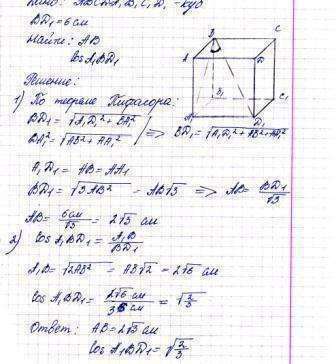 Дано: ABCDA₁B₁C₁D₁ - куб
BD₁ = 6 см
Найти: AB
cos A₁BD₁
Решение:
1) По теореме Пифагора:
BD₁ = √A₁D₁² + BA₁²
BA₁² = √AB² + AA₁² => BD₁ = √A₁D₁² + AB² + AA₁²
A₁D₁ = AB = AA₁
BD₁ = √3AB² = AB√3 => AB = BD₁/√3
AB = 6 см/√3 = 2√3 см
2) cos A₁BD₁ = A₁B/BD₁
A₁B = √2AB² = AB√2 = 2√6 см
cos A₁BD₁ = 2√6 см/36 см = √2/3
Ответ: AB = 2√3 см
cos A₁BD₁ = √2/3
B
C
A
D
B₁
C₁
A₁
D₁